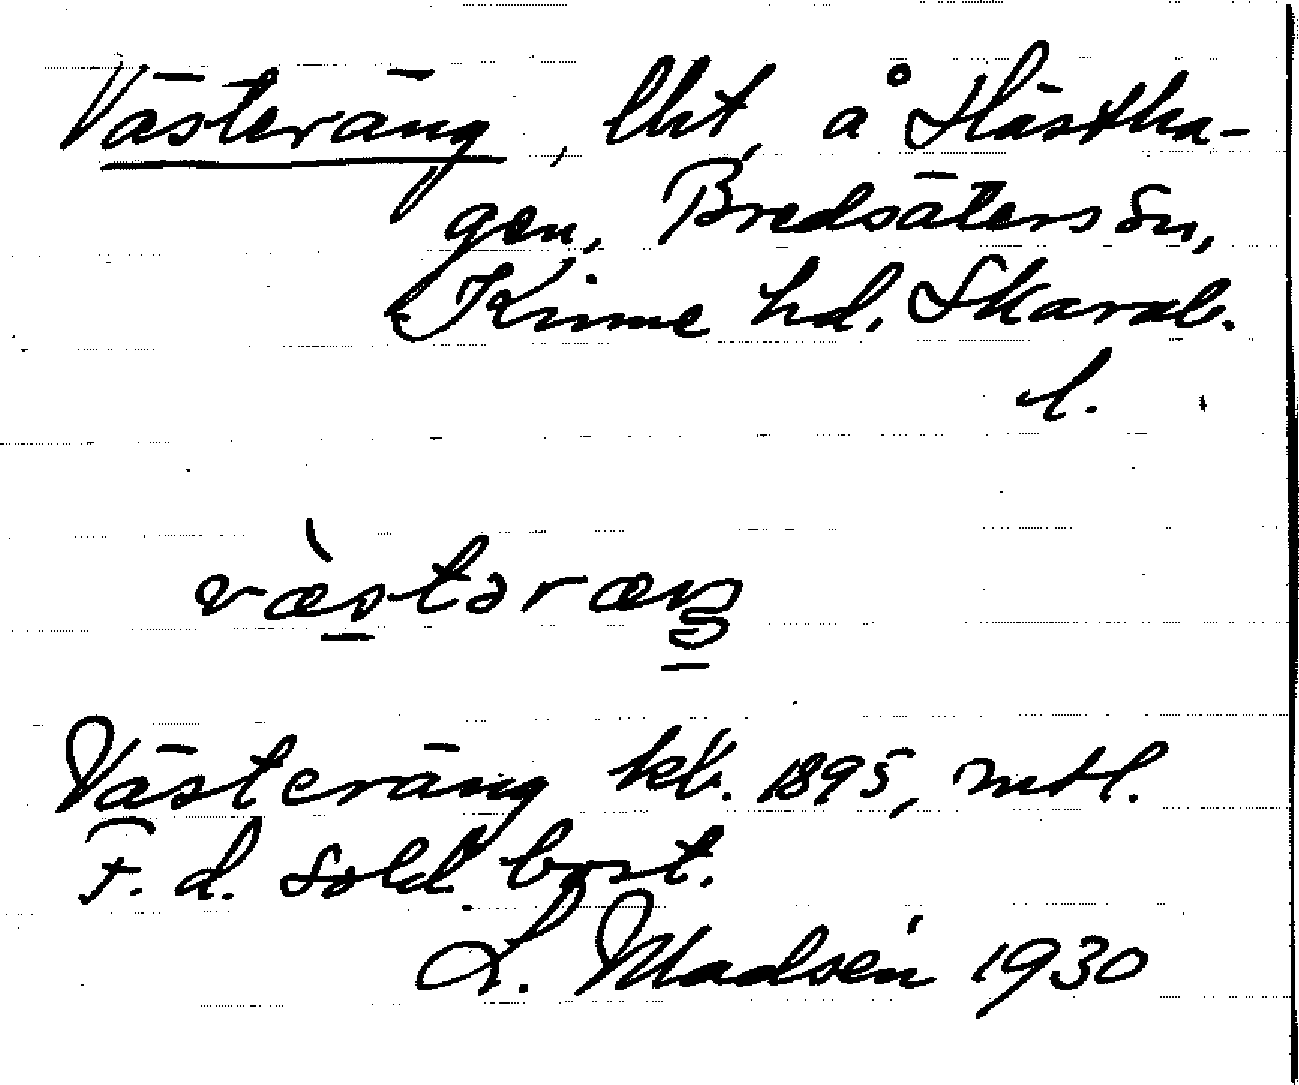 Västeräng, lht, å Hästha-
gen, Bredsäters sn,
Kinne hd, Skarab.
l.
væ̀stəræŋ
Västeräng kb. 1895, mtl.
F. d. sold. bost.
L. Madsén 1930